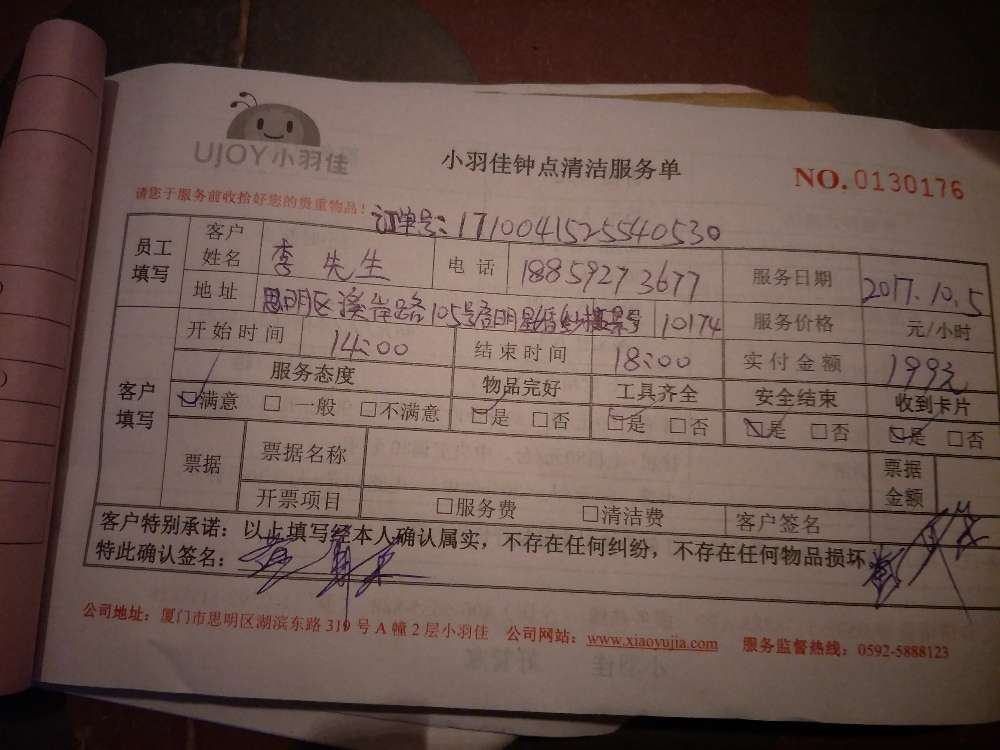 UJOY小羽佳
小羽佳钟点清洁服务单
NO.0130176
请您于服务前收拾好您的贵重物品！
订单号：1710041525540530
员工填写 客户姓名 李先生 电话 18859273677 服务日期 2017.10.5
地址 思明区溪岸路105号 10174 服务价格 元/小时
客户填写 开始时间 14:00 结束时间 18:00 实付金额 199元
服务态度 物品完好 工具齐全 安全结束 收到卡片
☑满意 □一般 □不满意 ☑是 □否 ☑是 □否 ☑是 □否 ☑是 □否
票据 票据名称 票据金额
开票项目 □服务费 □清洁费 客户签名
客户特别承诺：以上填写经本人确认属实，不存在任何纠纷，不存在任何物品损坏。
特此确认签名：
公司地址：厦门市思明区湖滨东路319号A幢2层小羽佳 公司网站：www.xiaoyujia.com 服务监督热线：0592-5888123